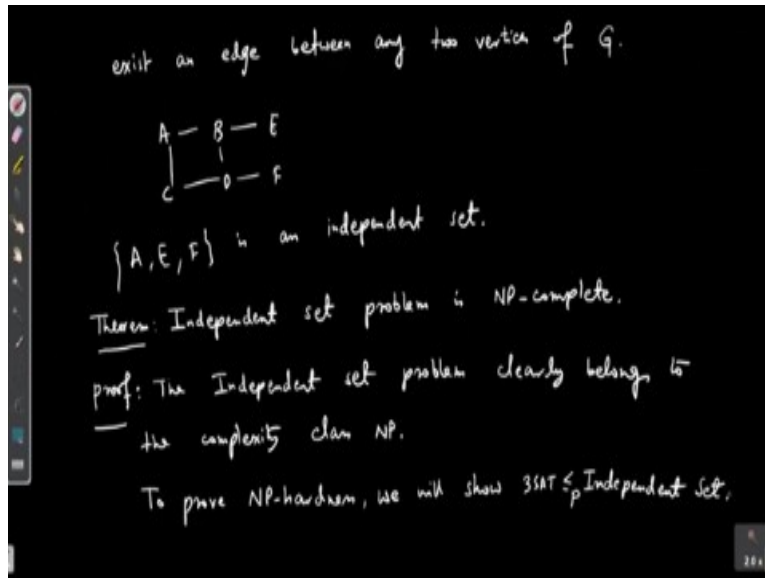 exist an edge between any two vertices of G.
A — B — E
C — D — F
{A, E, F} is an independent set.
Theorem: Independent set problem is NP-complete.
proof: The Independent set problem clearly belongs to
the complexity class NP.
To prove NP-hardness, we will show 3SAT ≤p Independent Set.